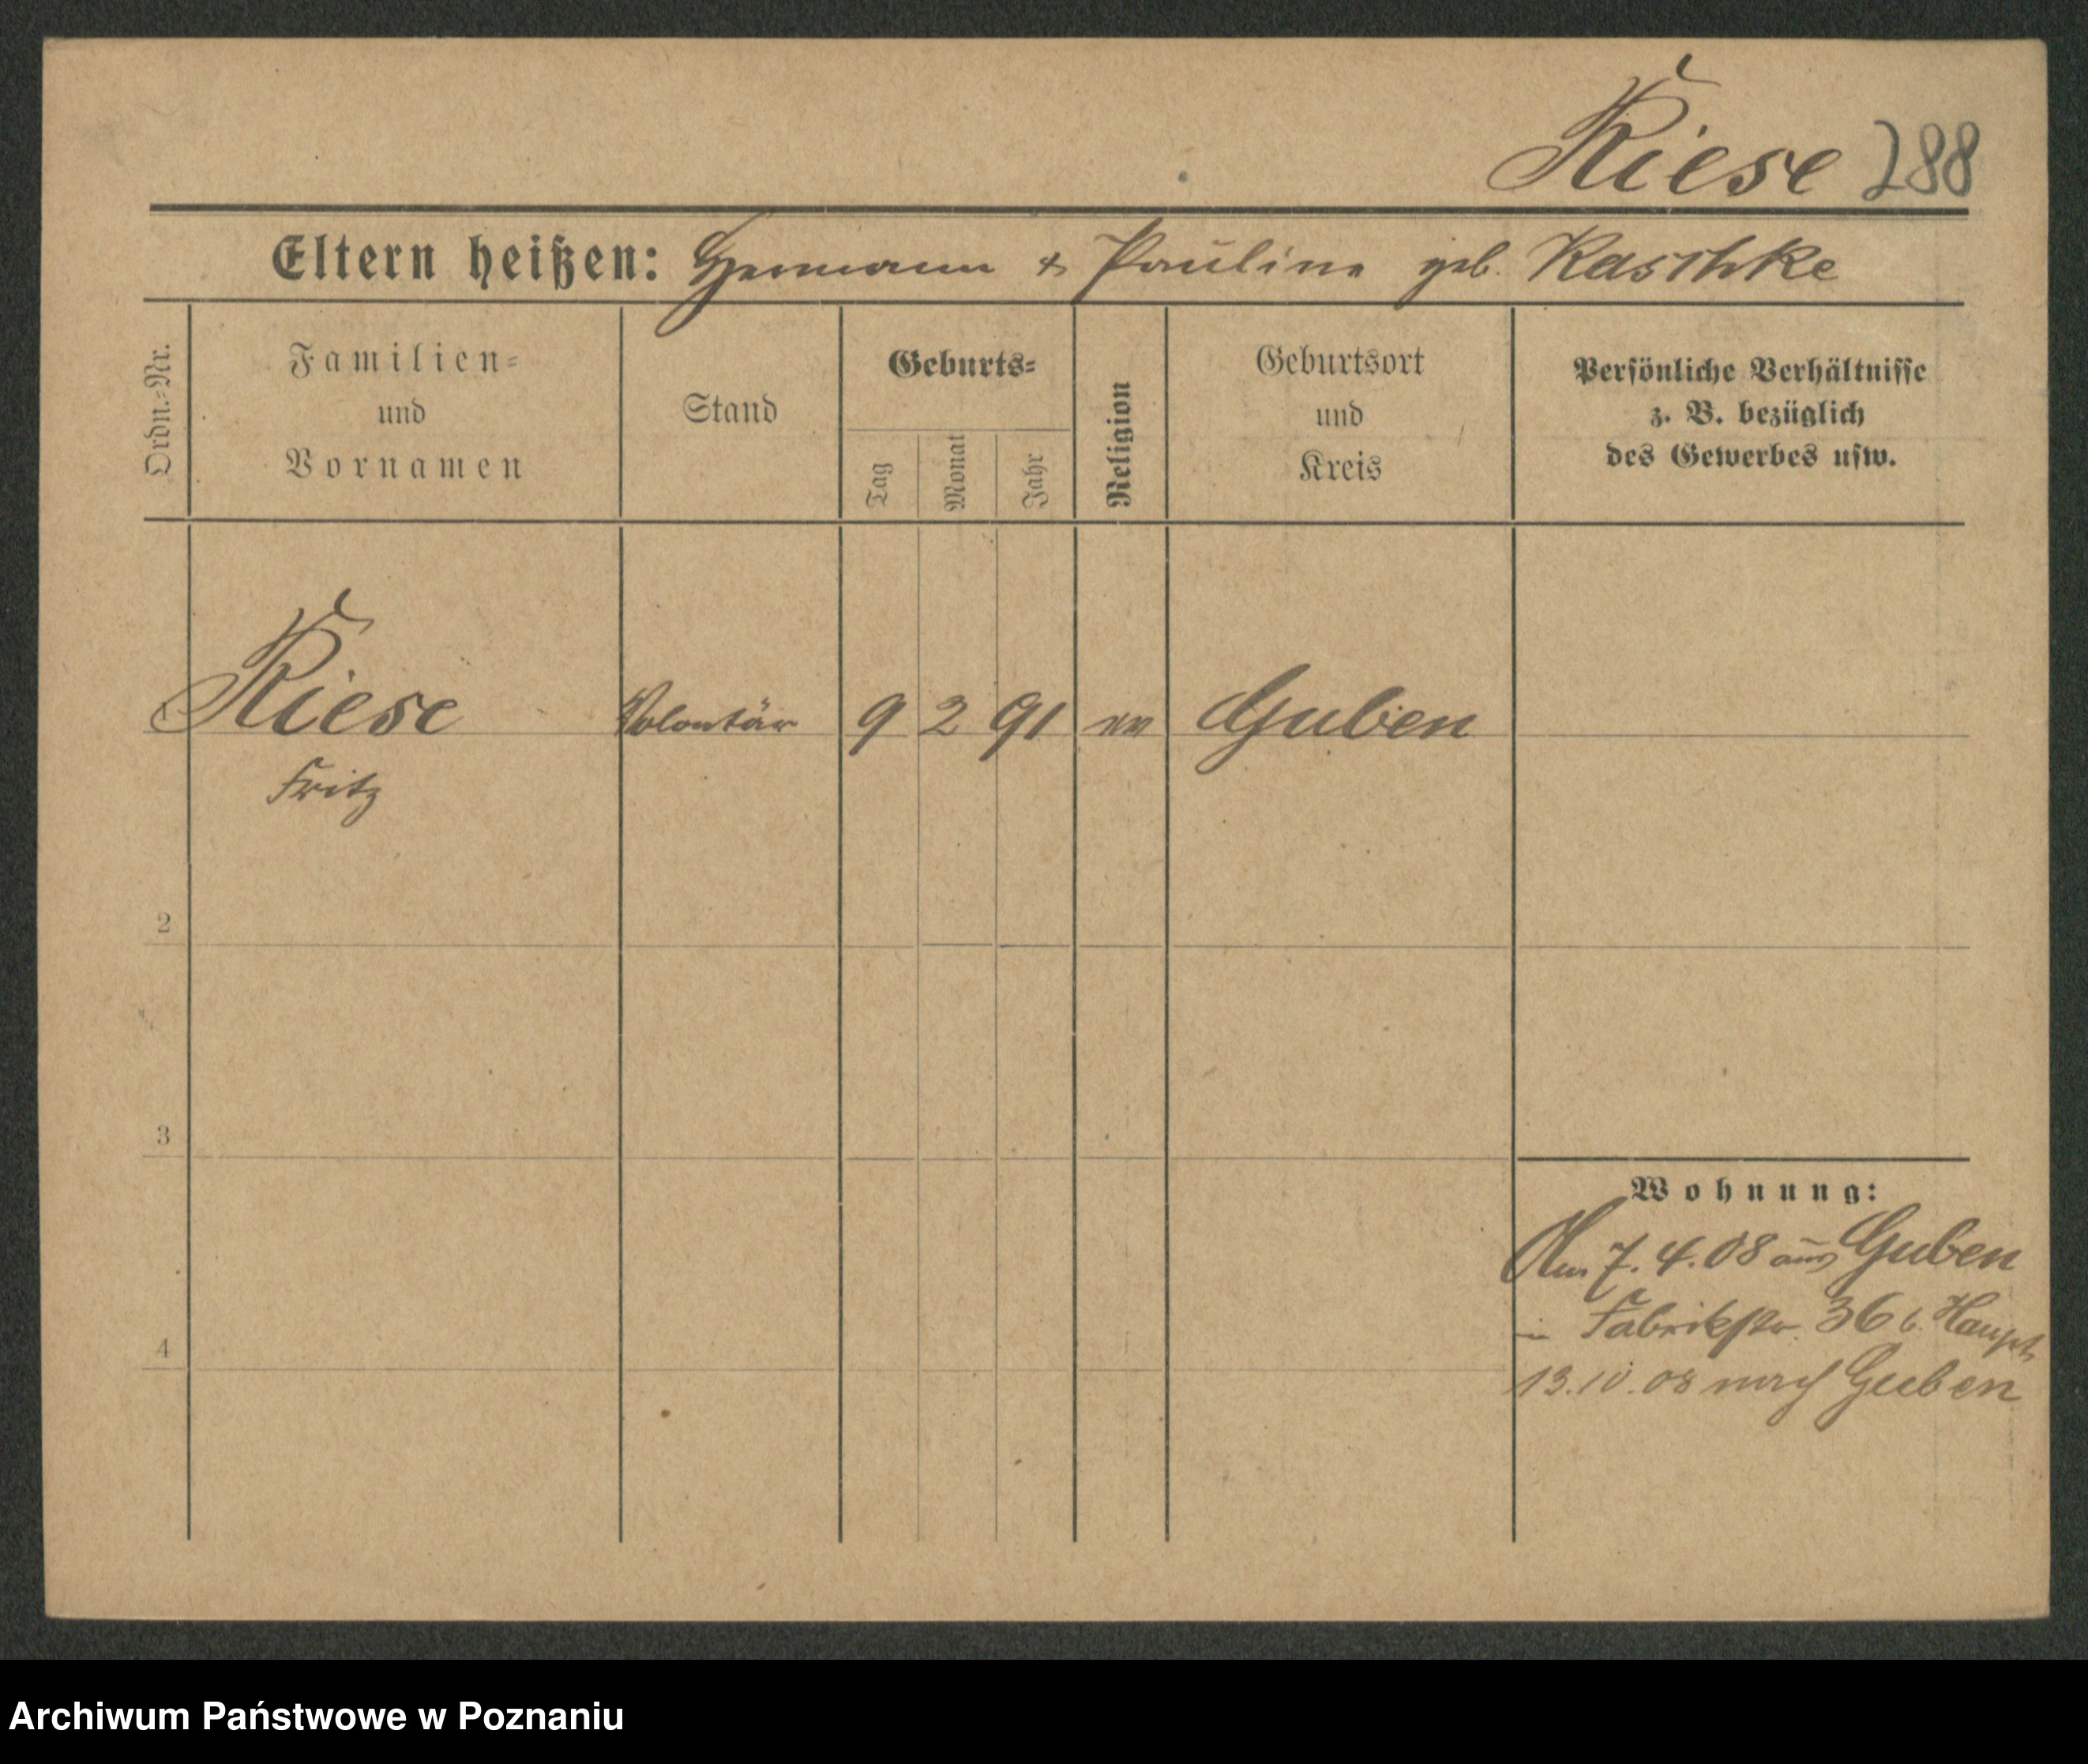 Riese 288
Eltern heißen: Hermann & Pauline geb. Raschke
Ordn.-Nr.
Familien-
und
Vornamen
Stand
Geburts-
Tag
Monat
Jahr
Religion
Geburtsort
und
Kreis
Persönliche Verhältnisse
z. B. bezüglich
des Gewerbes usw.
Riese Volontär 9 2 91 ev Guben
Fritz
2
3
4
Wohnung:
7. 4. 08 aus Guben
in Fabrikstr. 36 b. Haupt
13.10.08 nach Guben
Archiwum Państwowe w Poznaniu